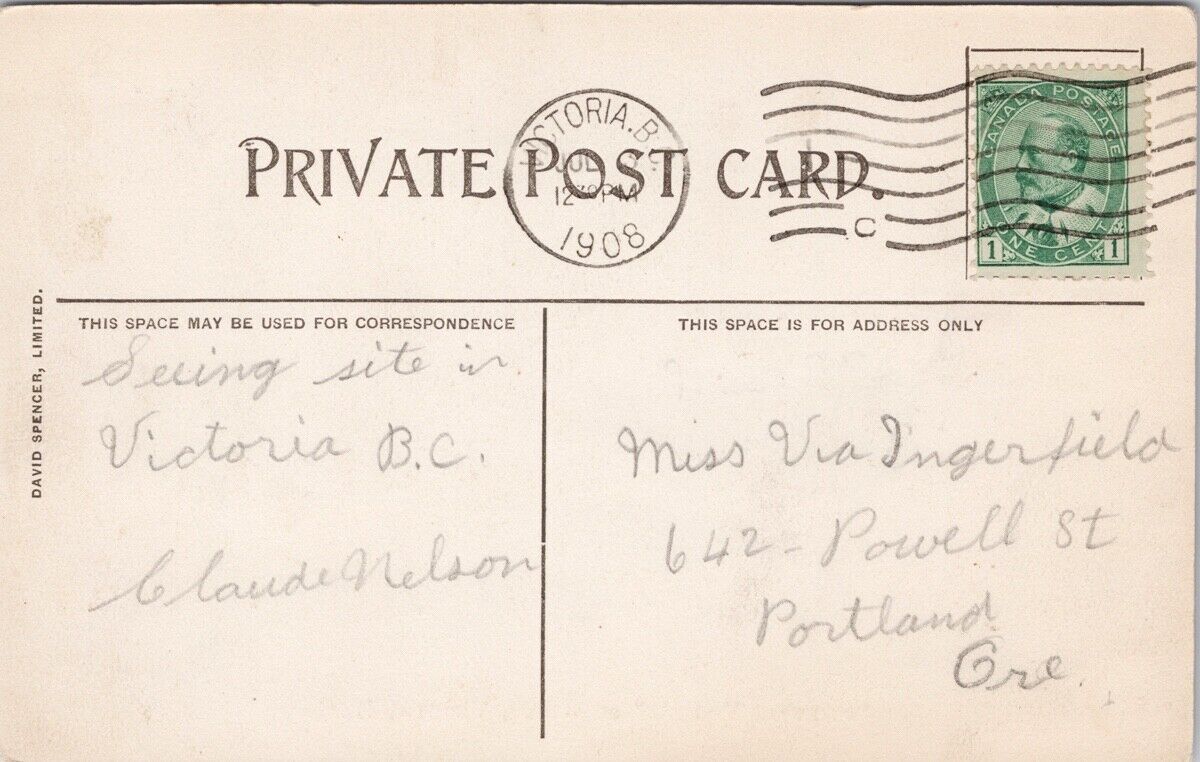 PRIVATE POST CARD.
VICTORIA. B.C.
JUL
12 30 PM
1908
C
CANADA POSTAGE
1 ONE CENT 1
DAVID SPENCER, LIMITED.
THIS SPACE MAY BE USED FOR CORRESPONDENCE
Seeing site in
Victoria B.C.
Claude Nelson
THIS SPACE IS FOR ADDRESS ONLY
Miss Via Ingerfield
642 - Powell St
Portland
Ore.